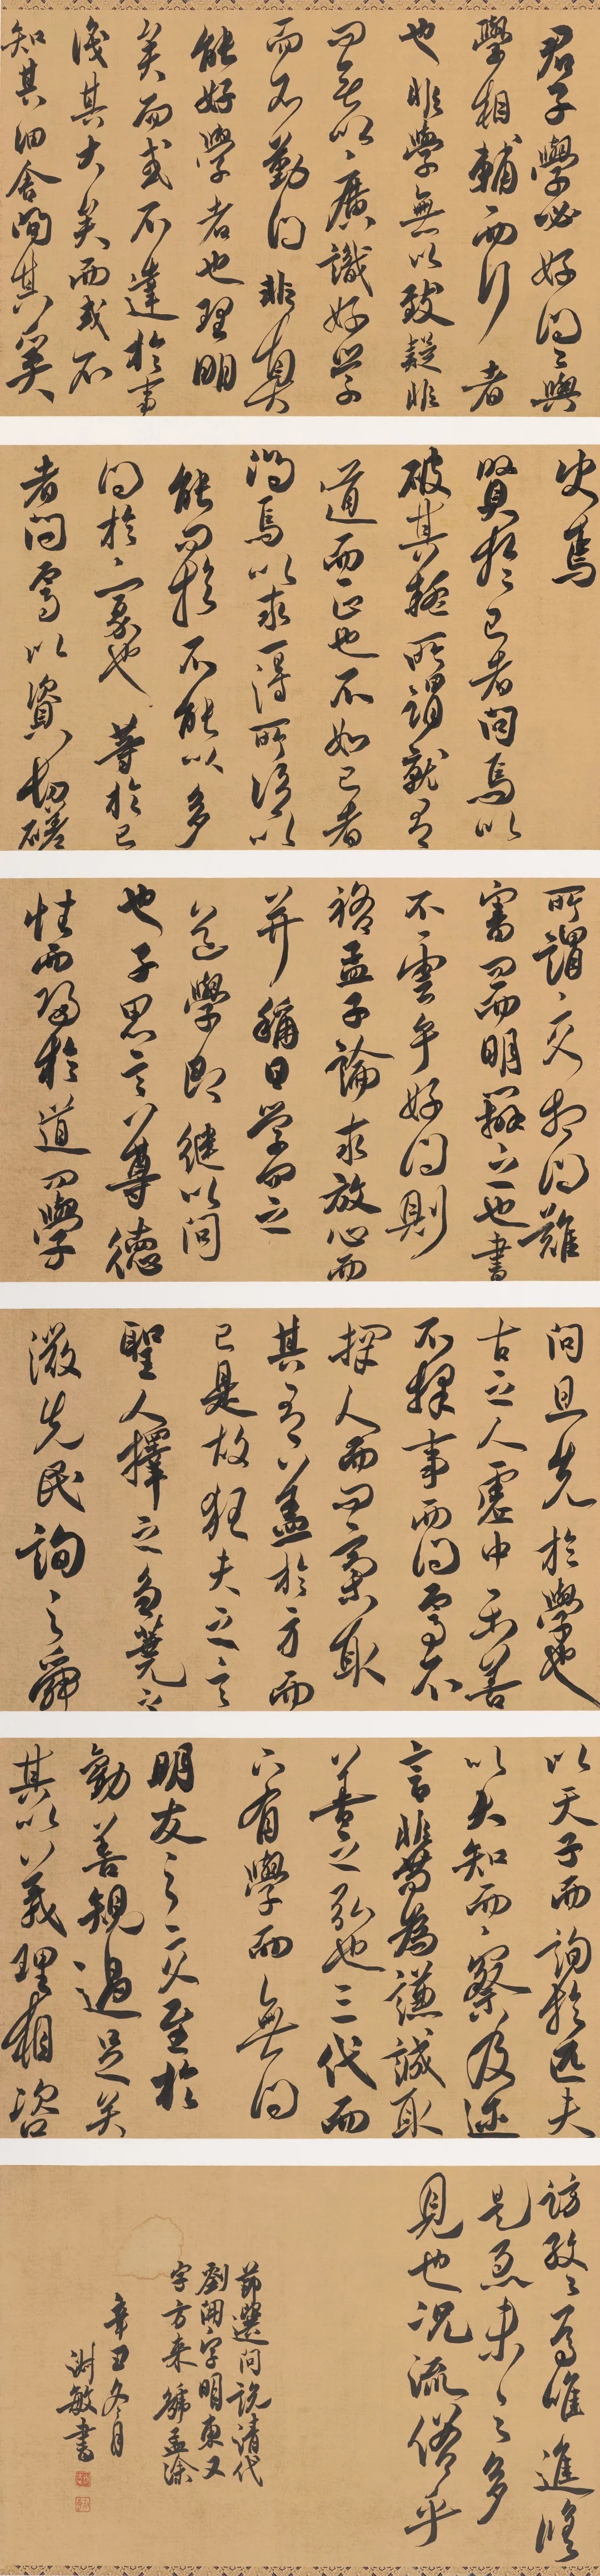 君子學必好問問與
學相輔而行者
也非學無以致疑非
問無以廣識好學
而不勤問非真
能好學者也理明
矣而或不達於事
識其大矣而或不
知其細舍問其奚
決焉
賢於己者問焉以
破其疑所謂就有
道而正也不如己者
問焉以求一得所謂以
能問於不能以多
問於寡也等於己
者問焉以資切磋
所謂交相問難
審問而明辨之也書
不雲乎好問則
裕孟子論求放心而
并稱曰學問之
道學即繼以問
也子思言尊德
性而歸於道問學
問且先於學也
古之人虛中樂善
不擇事而問焉不
擇人而問焉取
其有益於方而
已是故狂夫之言
聖人擇之芻蕘之
微先民詢之舜
以天子而詢於匹夫
以大知而察及邇
言非苟為謙誠取
善之弘也三代而
下有學而無問
朋友之交至於
勸善規過足矣
其以義理相咨
訪孜孜焉唯進修
是急未之多
見也況流俗乎
節選問說清代
劉開字明東又
字方來號孟塗
辛丑冬月
謝敏書